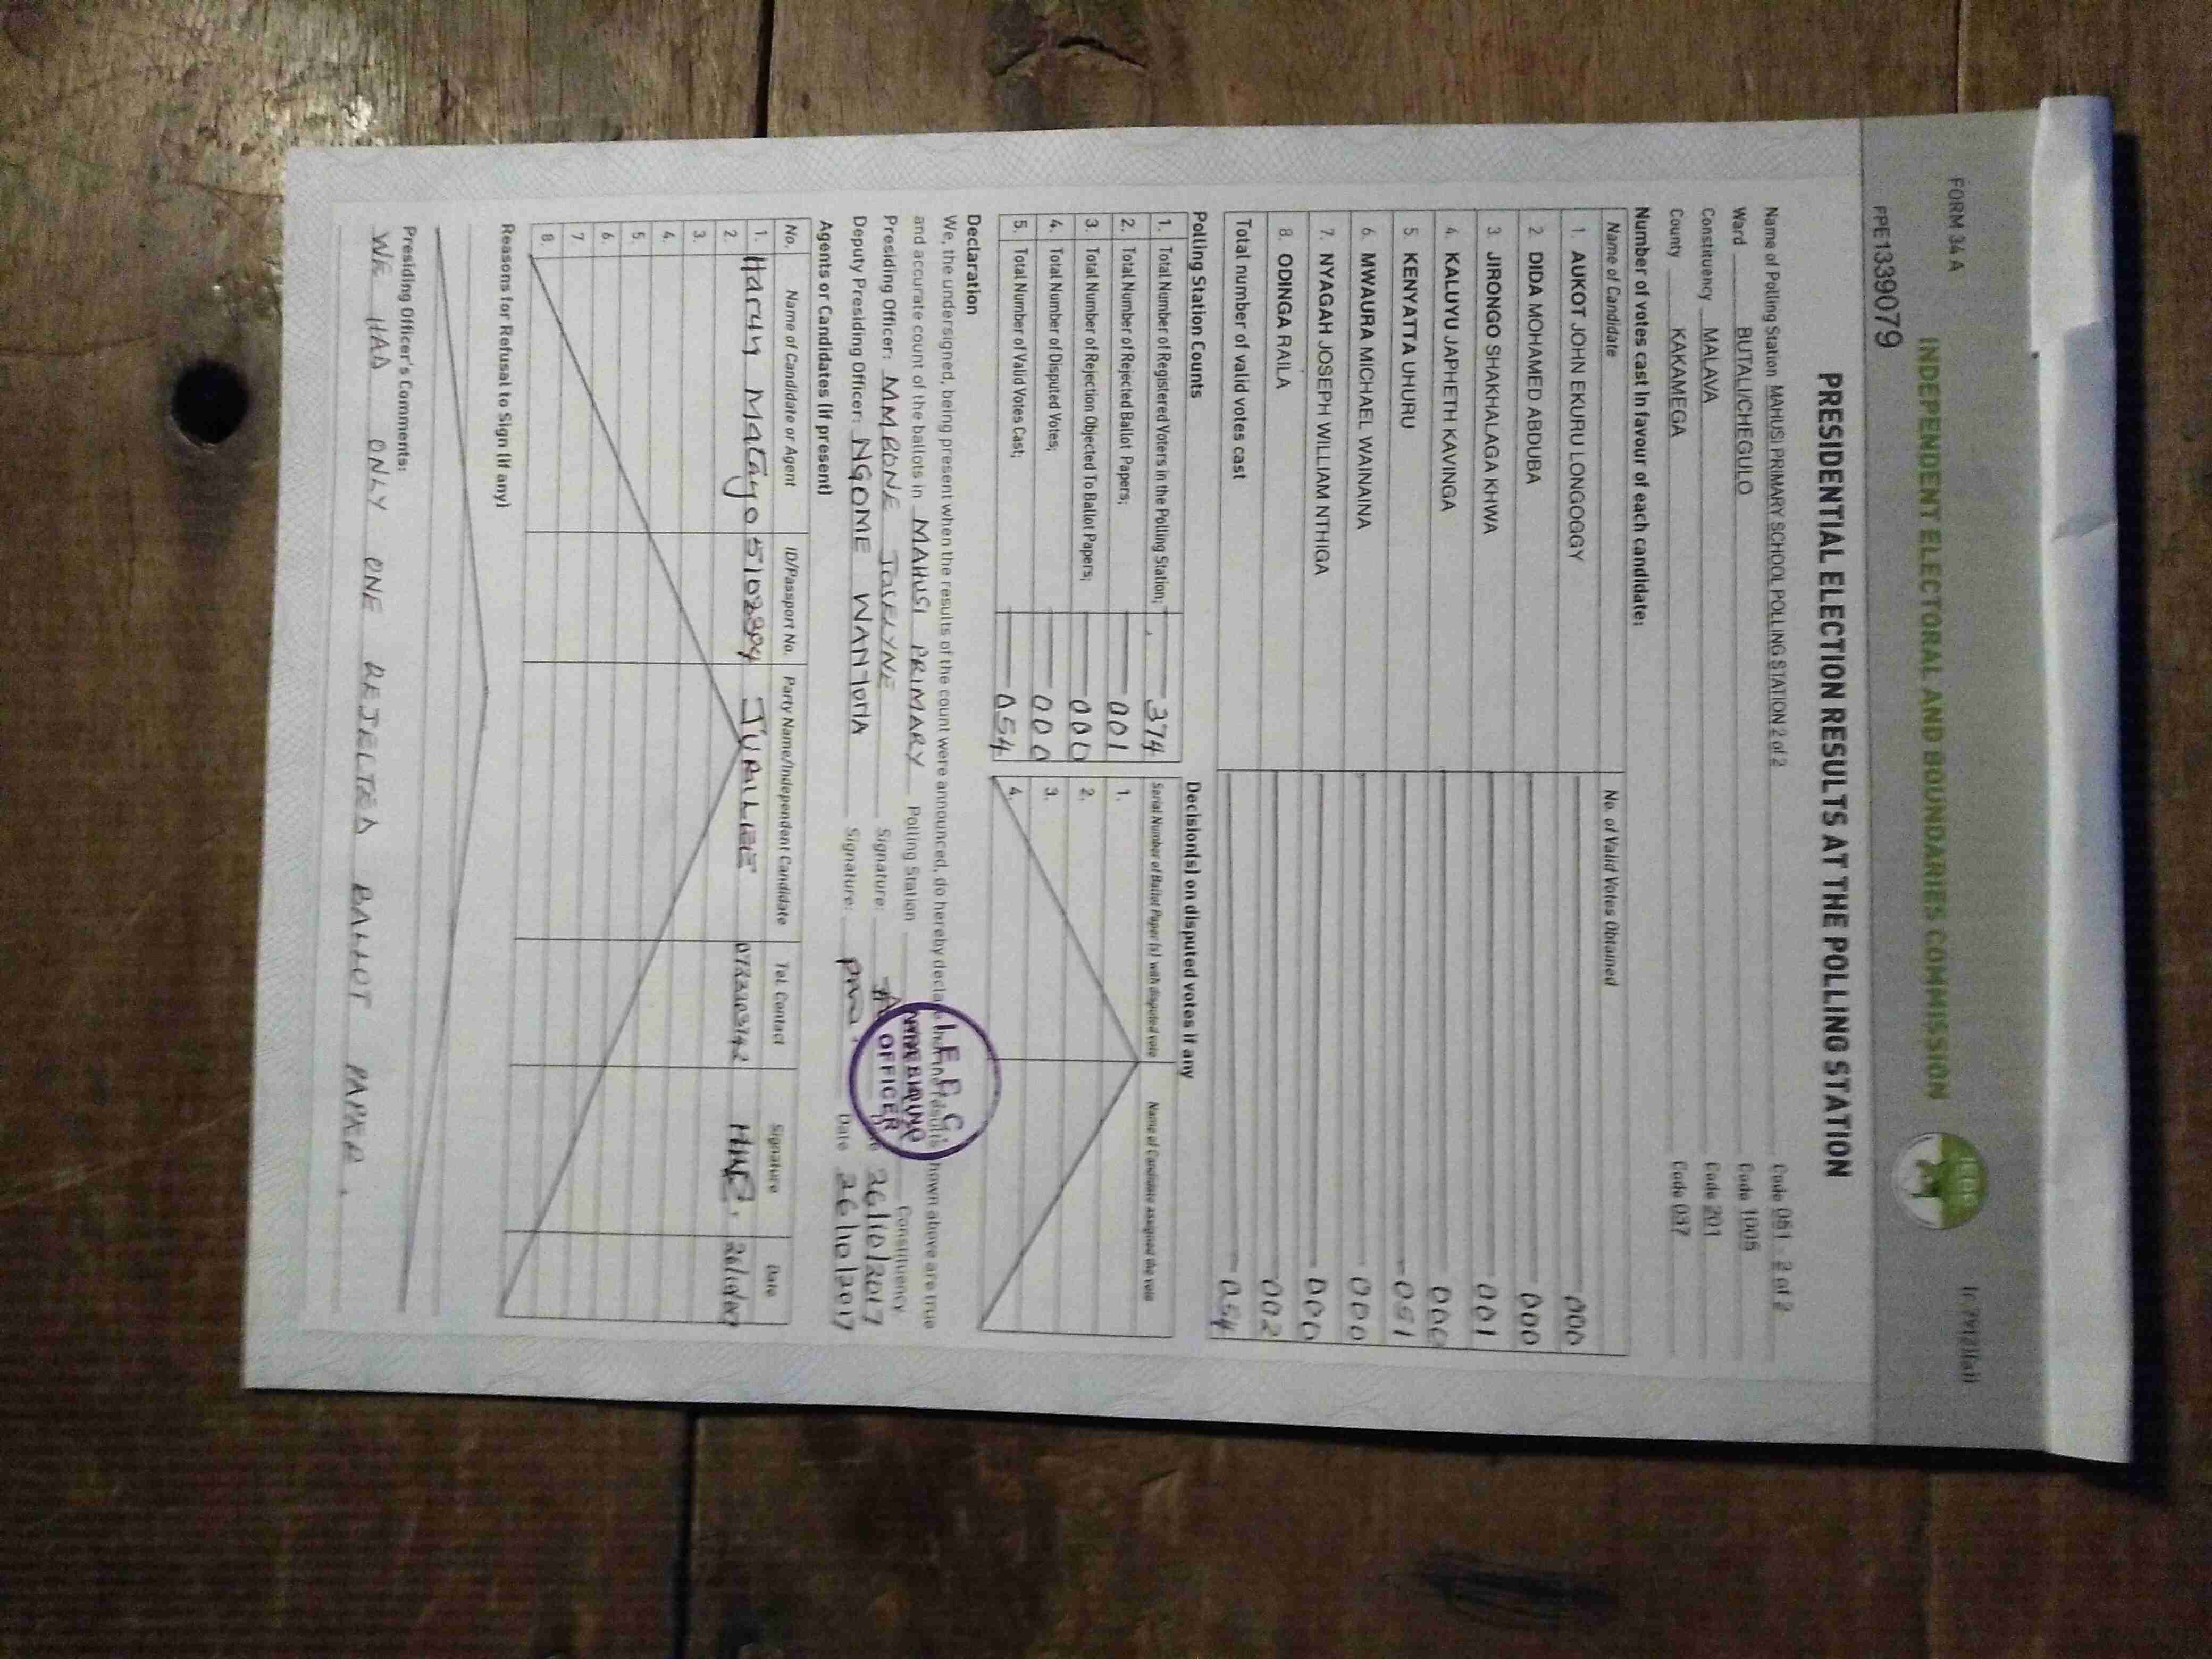 FORM 34 A
INDEPENDENT ELECTORAL AND BOUNDARIES COMMISSION
IEBC
FPE13390079
PRESIDENTIAL ELECTION RESULTS AT THE POLLING STATION
Name of Polling Station MAHUSI PRIMARY SCHOOL POLLING STATION 2 of 2 Code 051 - 2 of 2
Ward BUTALI/CHEGULO Code 1005
Constituency MALAVA Code 201
County KAKAMEGA Code 037
Number of votes cast in favour of each candidate:
Name of Candidate No. of Valid Votes Obtained
1. AUKOT JOHN EKURU LONGOGGY 000
2. DIDA MOHAMED ABDUBA 000
3. JIRONGO SHAKHALAGA KHWA 001
4. KALUYU JAPHETH KAVINGA 000
5. KENYATTA UHURU 051
6. MWAURA MICHAEL WAINAINA 000
7. NYAGAH JOSEPH WILLIAM NTHIGA 000
8. ODINGA RAILA 002
Total number of valid votes cast 054
Polling Station Counts
1. Total Number of Registered Voters in the Polling Station; 374
2. Total Number of Rejected Ballot Papers; 001
3. Total Number of Rejection Objected To Ballot Papers; 000
4. Total Number of Disputed Votes; 000
5. Total Number of Valid Votes Cast; 054
Decision(s) on disputed votes if any
Serial Number of Ballot Paper (s) with disputed vote Name of Candidate assigned the vote
1.
2.
3.
4.
Declaration
We, the undersigned, being present when the results of the count were announced, do hereby declare that the results shown above are true
and accurate count of the ballots in MAHUSI PRIMARY Polling Station Constituency.
Presiding Officer: MMBONE JOSELYNE Signature: Date 26/10/2017
Deputy Presiding Officer: NGOME WANJORIA Signature: Date 26/10/2017
I.E.B.C
OFFICER
Agents or Candidates (if present)
No. Name of Candidate or Agent ID/Passport No. Party Name/Independent Candidate Tel. Contact Signature Date
1. Harry Matayo 5102394 JUBILEE 26/10/2017
2.
3.
4.
5.
6.
7
8.
Reasons for Refusal to Sign (if any)
Presiding Officer's Comments:
WE HAD ONLY ONE REJECTED BALLOT PAPER.